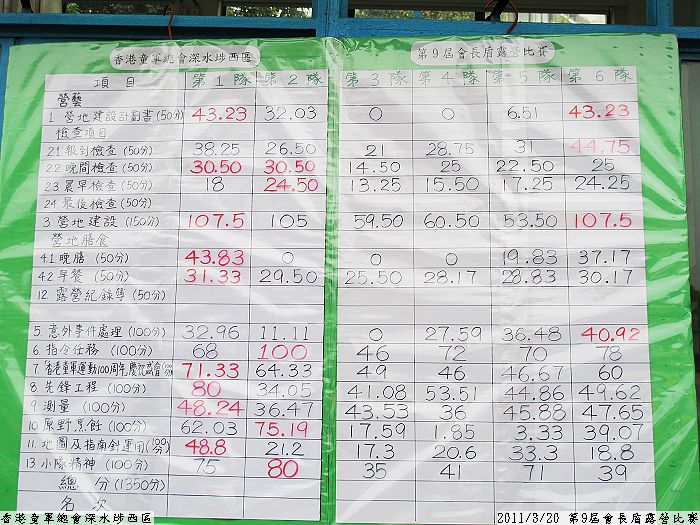 香港童軍總會深水埗西區 第9屆會長盾露營比賽
項目 第1隊 第2隊 第3隊 第4隊 第5隊 第6隊
營藝
1 營地建設計劃書(50分) 43.23 32.03 0 0 6.51 43.23
檢查項目
2.1 報到檢查(50分) 38.25 26.50 21 28.75 31 44.75
2.2 晚間檢查(50分) 30.50 30.50 14.50 25 22.50 25
2.3 晨早檢查(50分) 18 24.50 13.25 15.50 17.25 24.25
2.4 最後檢查(50分)
3 營地建設(150分) 107.5 105 59.50 60.50 53.50 107.5
營地膳食
4.1 晚膳(50分) 43.83 0 0 0 19.83 37.17
4.2 早餐(50分) 31.33 29.50 25.50 28.17 28.83 30.17
12 露營紀錄簿(50分)
5 意外事件處理(100分) 32.96 11.11 0 27.59 36.48 40.92
6 指令任務(100分) 68 100 46 72 70 78
7 香港童軍運動100周年慶祝盛會(100分) 71.33 64.33 49 46 46.67 60
8 先鋒工程(100分) 80 34.05 41.08 53.51 44.86 49.62
9 測量(100分) 48.24 36.47 43.53 36 45.88 47.65
10 原野烹飪(100分) 62.03 75.19 17.59 1.85 3.33 39.07
11 地圖及指南針運用(100分) 48.8 21.2 17.3 20.6 33.3 18.8
13 小隊精神(100分) 75 80 35 41 71 39
總分(1350分)
名次
香港童軍總會深水埗西區 2011/3/20 第9屆會長盾露營比賽